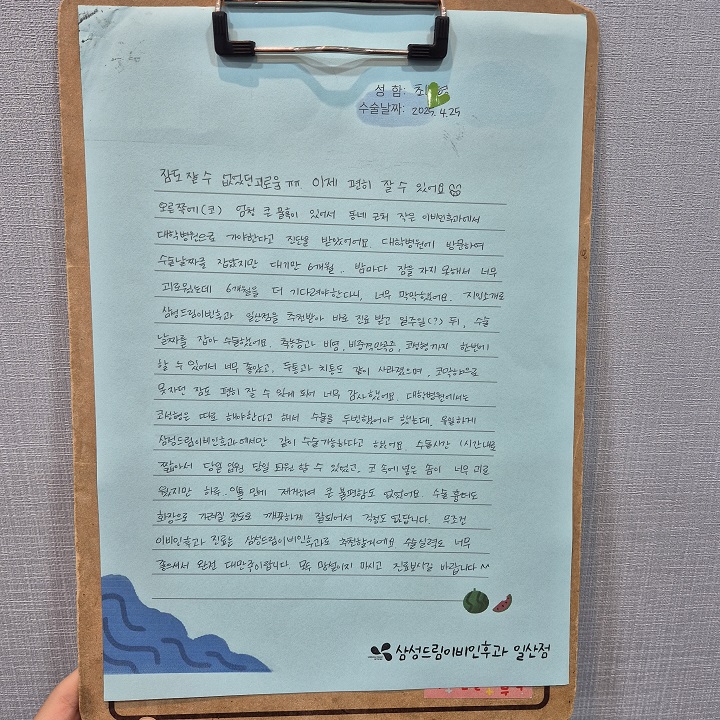 성 함: 최
수술날짜: 2025. 4.25
잠도 잘 수 없었던 괴로움 ㅠㅠ. 이제 편히 잘 수 있어요
오른쪽에(코) 엄청 큰 물혹이 있어서 동네 근처 작은 이비인후과에서
대학병원으로 가야한다고 진단을 받았었어요. 대학병원에 방문하여
수술날짜를 잡았지만 대기만 6개월.. 밤마다 잠을 자지 못해서 너무
괴로웠는데 6개월을 더 기다려야한다니, 너무 막막했어요. 지인소개로
삼성드림이비인후과 일산점을 추천받아 바로 진료 받고 일주일(?) 뒤, 수술
날짜를 잡아 수술했어요. 축농증과 비염, 비중격만곡증, 코성형까지 한번에
할 수 있어서 너무 좋았고, 두통과 치통도 같이 사라졌으며, 코막힘으로
못자던 잠도 편히 잘 수 있게 되어 너무 감사했어요. 대학병원에서는
코성형은 따로 해야한다고 해서 수술을 두번했어야 했는데, 유일하게
삼성드림이비인후과에서만 같이 수술가능하다고 하였어요. 수술시간 1시간내로
짧아서 당일 입원 당일 퇴원 할 수 있었고, 코 속에 넣은 솜이 너무 괴로
웠지만 하루..이틀 만에 제거하여 큰 불편함도 없었어요. 수술 흉터도
화장으로 가려질 정도로 깨끗하게 잘되어서 걱정도 없답니다. 무조건
이비인후과 진료는 삼성드림이비인후과로 추천할게요 수술실력도 너무
좋으셔서 완전 대만족이랍니다. 모두 망설이지 마시고 진료보시길 바랍니다^^
삼성드림이비인후과 일산점